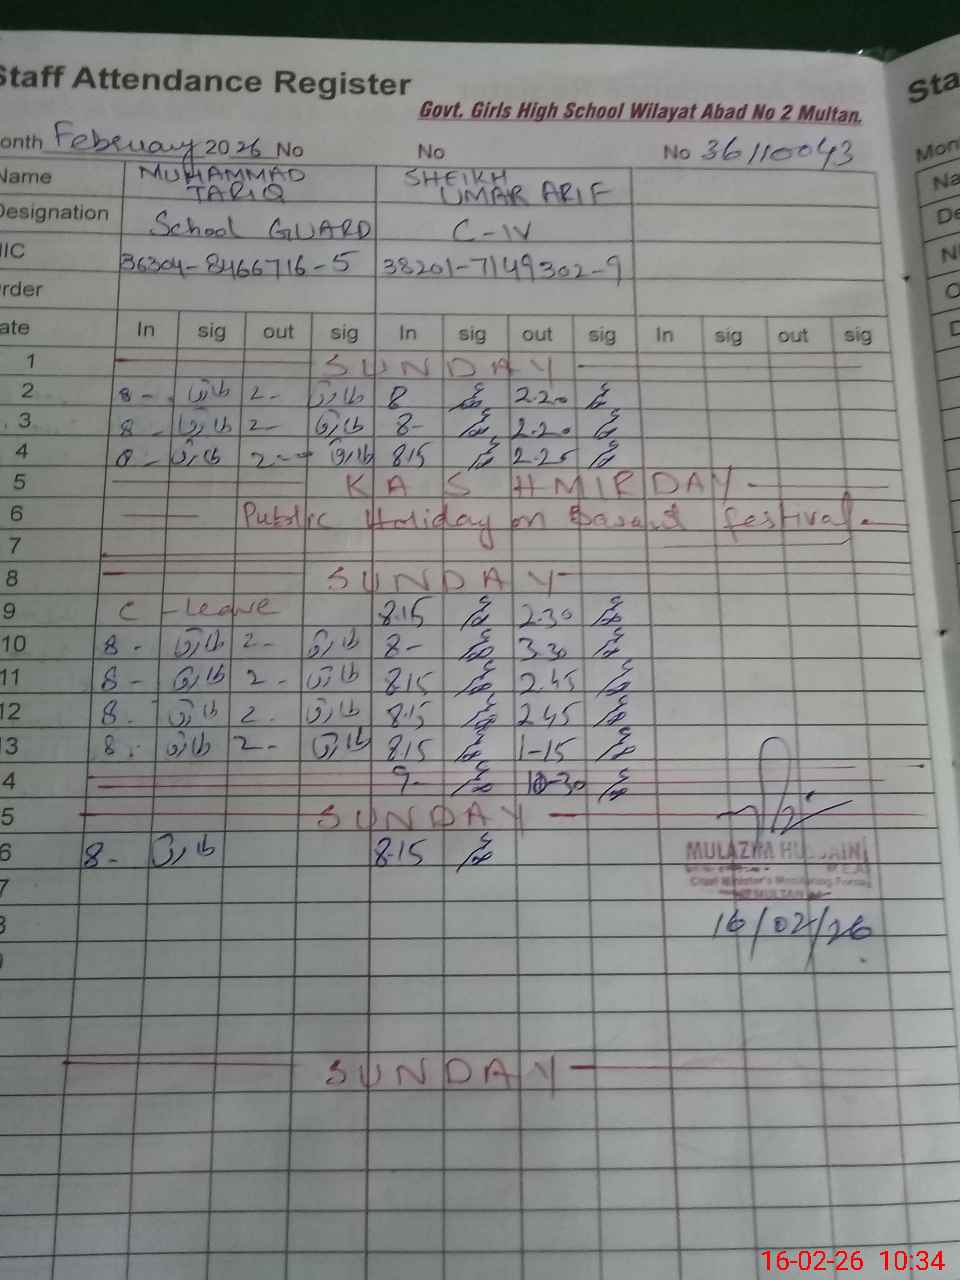 Staff Attendance Register
Govt. Girls High School Wilayat Abad No 2 Multan.
onth February 2026 No No No 36110043
Name MUHAMMAD TARIQ SHEIKH UMAR ARIF
Designation School GUARD C-IV
NIC 36304-8466716-5 38201-7149302-9
rder
ate In sig out sig In sig out sig In sig out sig
1 SUNDAY
2 8- طارق 2- طارق 8 2.20
3 8- طارق 2- طارق 8- 2.20
4 8- طارق 2- طارق 8.15 2.25
5 KASHMIR DAY
6 Public Holiday on Basant festival.
7
8 SUNDAY
9 C-leave 8.15 2.30
10 8- طارق 2- طارق 8- 3.30
11 8- طارق 2- طارق 8.15 2.45
12 8. طارق 2. طارق 8.15 2.45
3 8. طارق 2- طارق 8.15 1-15
4 9- 10-30
5 SUNDAY
6 8- طارق 8.15
MULAZIM HUSSAIN
M.E.A
Chief Minister's Monitoring Force
MULTAN
7
16/02/26
SUNDAY
Sta
Mon
Na
De
NI
O
D
16-02-26 10:34